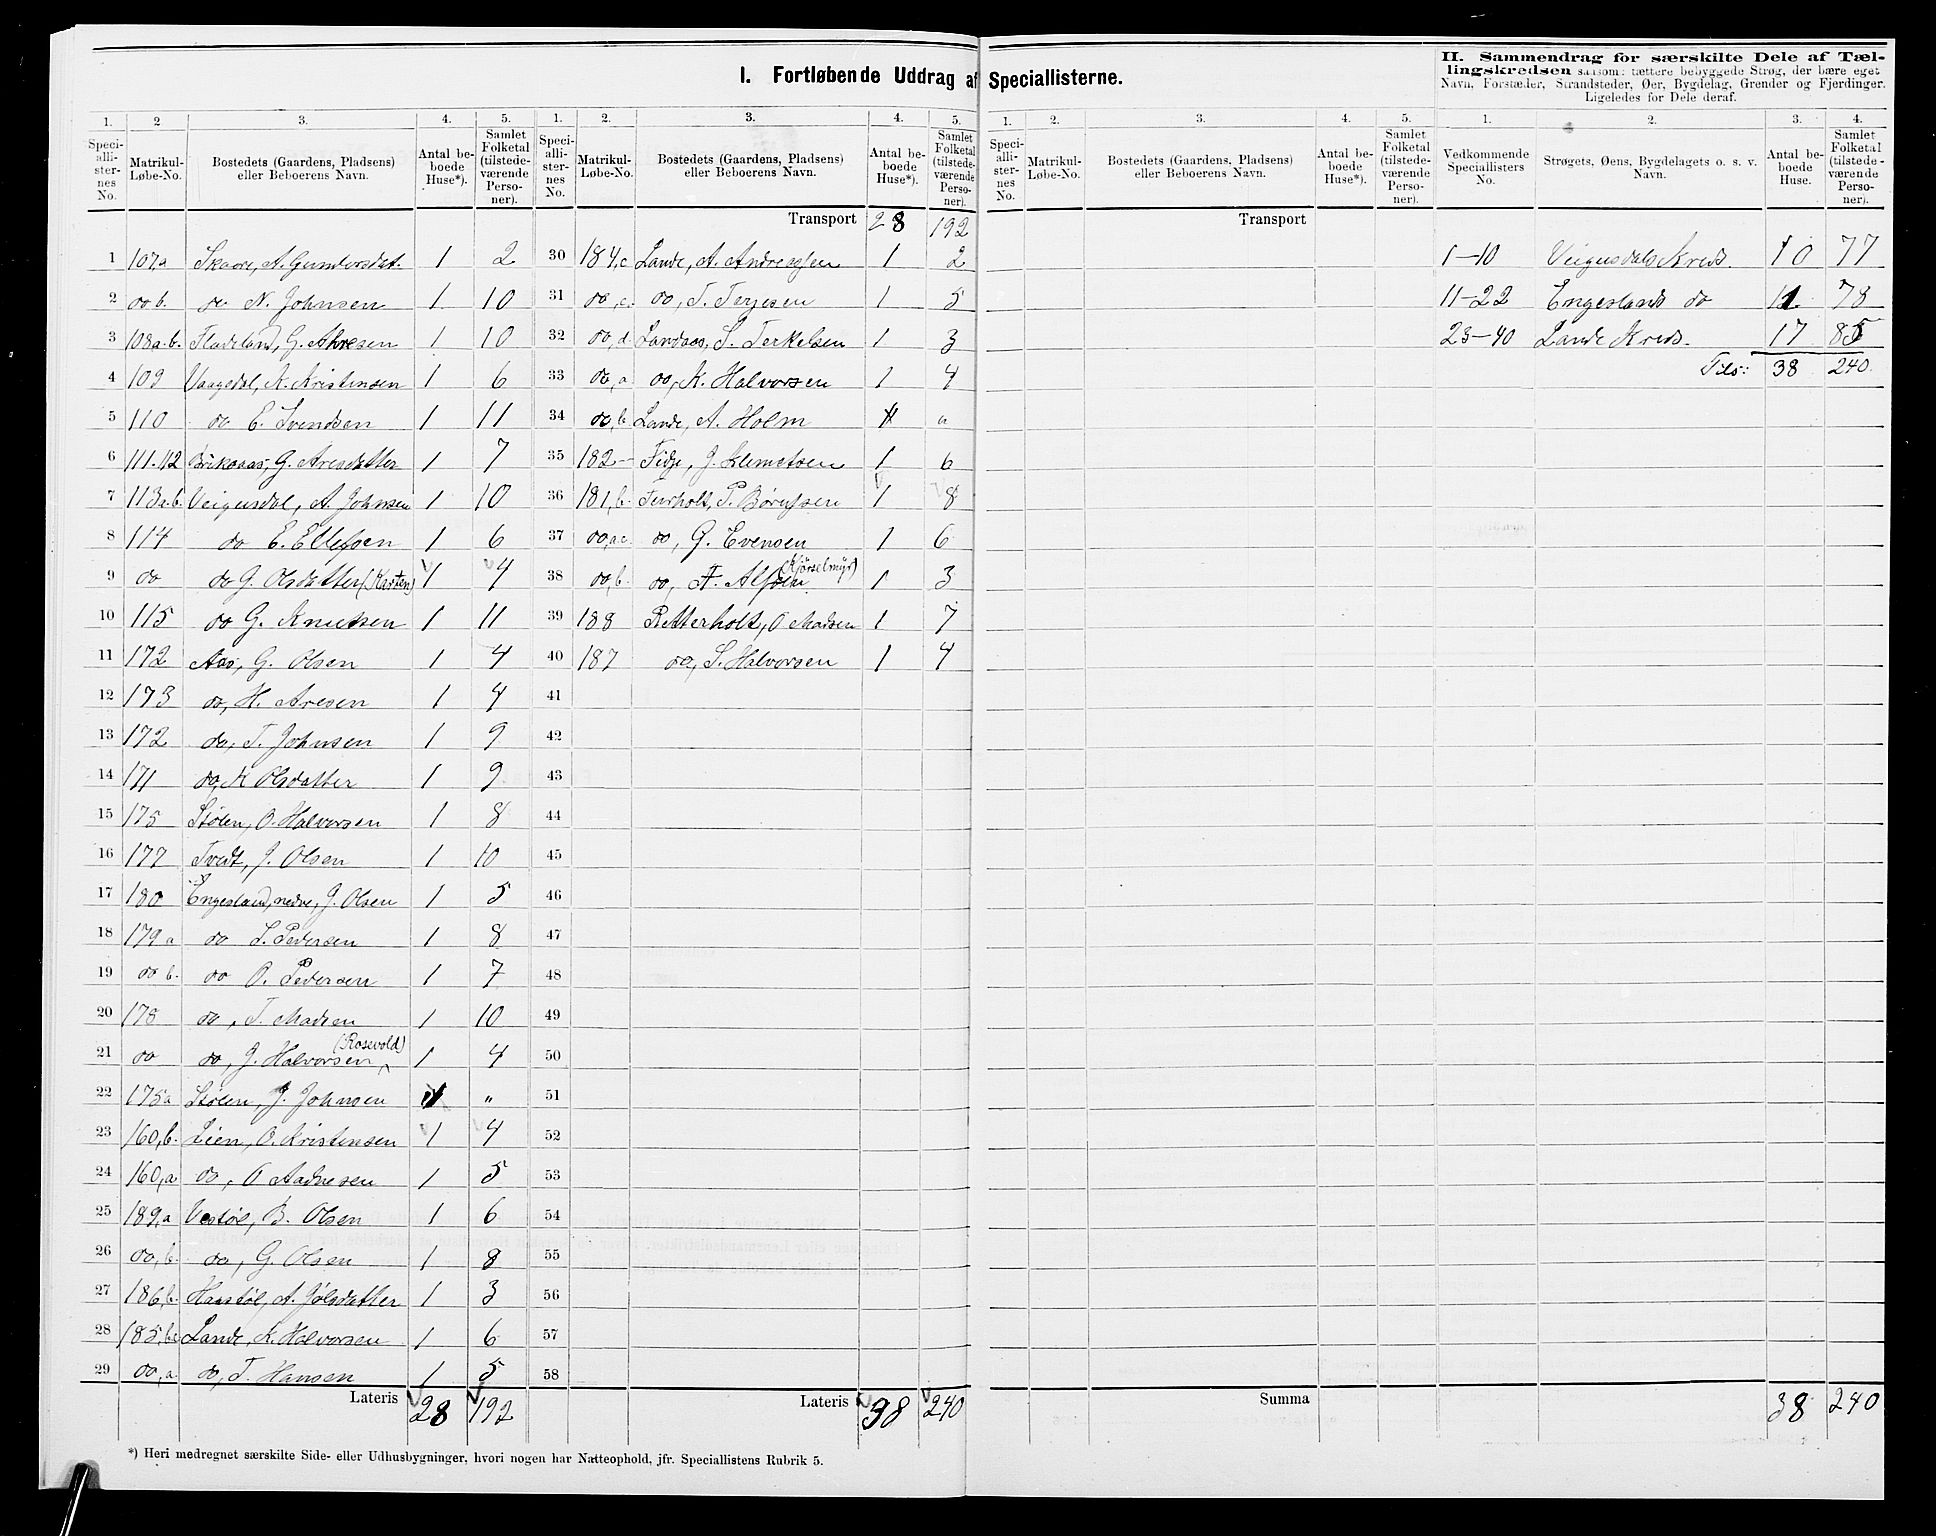 I. Fortløbende Uddrag af Speciallisterne.
II. Sammendrag for særskilte Dele af Tæl-
lingskredsen saasom: tættere bebyggede Strøg, der bære eget
Navn, Forstæder, Strandsteder, Øer, Bygdelag, Grender og Fjerdinger.
Ligeledes for Dele deraf.
1. 2 3. 4. 5. 1. 2. 3. 4. 5. 1. 2. 3. 4. 5. 1. 2. 3. 4.
Speci-alli-ster-nes No. Matrikul-Løbe-No. Bostedets (Gaardens, Pladsens) eller Beboerens Navn. Antal be-boede Huse*). Samlet Folketal (tilstede-værende Perso-ner).
Speci-alli-ster-nes No. Matrikul-Løbe-No. Bostedets (Gaardens, Pladsens) eller Beboerens Navn. Antal be-boede Huse*). Samlet Folketal (tilstede-værende Perso-ner).
Speci-alli-ster-nes No. Matrikul-Løbe-No. Bostedets (Gaardens, Pladsens) eller Beboerens Navn. Antal be-boede Huse*). Samlet Folketal (tilstede-værende Perso-ner).
Vedkommende Speciallisters No. Strøgets, Øens, Bygdelagets o. s. v. Navn. Antal be-boede Huse. Samlet Folketal (tilstede-værende Perso-ner).
1 107,a Skaare, A. Gundersdat. 1 2
2 do b. do N. Johnsen 1 10
3 108a.b. Fladeland, G. 1 10
4 109 Vaagedal, K. Kristensen 1 6
5 110 do E. Svendsen 1 11
6 111.112 G. Aresdatter 1 7
7 113a.b. Veigusdal, A. Johnsen 1 10
8 114 do E. Ellefsen 1 6
9 do do G. Olsdatter (Kasten) 1 4
10 115 do G. Knutsen 1 11
11 172 Aas, G. Olsen 1 4
12 173 do, H. Aresen 1 4
13 172 do, T. Johnsen 1 9
14 171 do, K Olsdatter 1 9
15 175 Stølen, O. Halvorsen 1 8
16 177 Tvedt, J. Olsen 1 10
17 180 Engesland, nedre, J. Olsen 1 5
18 179 a do S. Pedersen 1 8
19 do b. do O. Pedersen 1 7
20 178 do, T. Madsen 1 10
21 do do, J. Halvorsen (Rosevold) 1 4
22 175a Stølen, J. Johnsen "
23 160,b. Lien, O. Kristensen 1 4
24 160,a do, O Aadnesen 1 5
25 189,a Vestøl, B. Olsen 1 6
26 do, b. do, G. Olsen 1 8
27 186,b. Haustøl, A. Jølsdatter 1 3
28 185, Lande, K. Halvorsen 1 6
29 do, a do, T. Hansen 1 5
Lateris 28 192
Transport 28 192
30 184,c Lande, A. Andreassen 1 2
31 do, c. do, T. Terjesen 1 5
32 do, d. Landaas, S. Terkelsen 1 3
33 do, a do, K. Halvorsen 1 4
34 do, b. Lande, A. Holm "
35 182 Fidje, J. Klemetsen 1 6
36 181,b. P. 1 8
37 do, a.c. do, G. Evensen 1 6
38 do, b. do, F. (Kjørselmyr) 1 3
39 188 Retterholt, O Madsen 1 7
40 187 do, S. Halvorsen 1 4
41
42
43
44
45
46
47
48
49
50
51
52
53
54
55
56
57
58
Lateris 38 240
Transport
Summa
1–10 Veigusdals Kreds. 10 77
11–22 Engeslands do 11 78
23–40 Lande Kreds. 17 85
Tils: 38 240.
38 240
*) Heri medregnet særskilte Side- eller Udhusbygninger, hvori nogen har Natteophold, jfr. Speciallistens Rubrik 5.